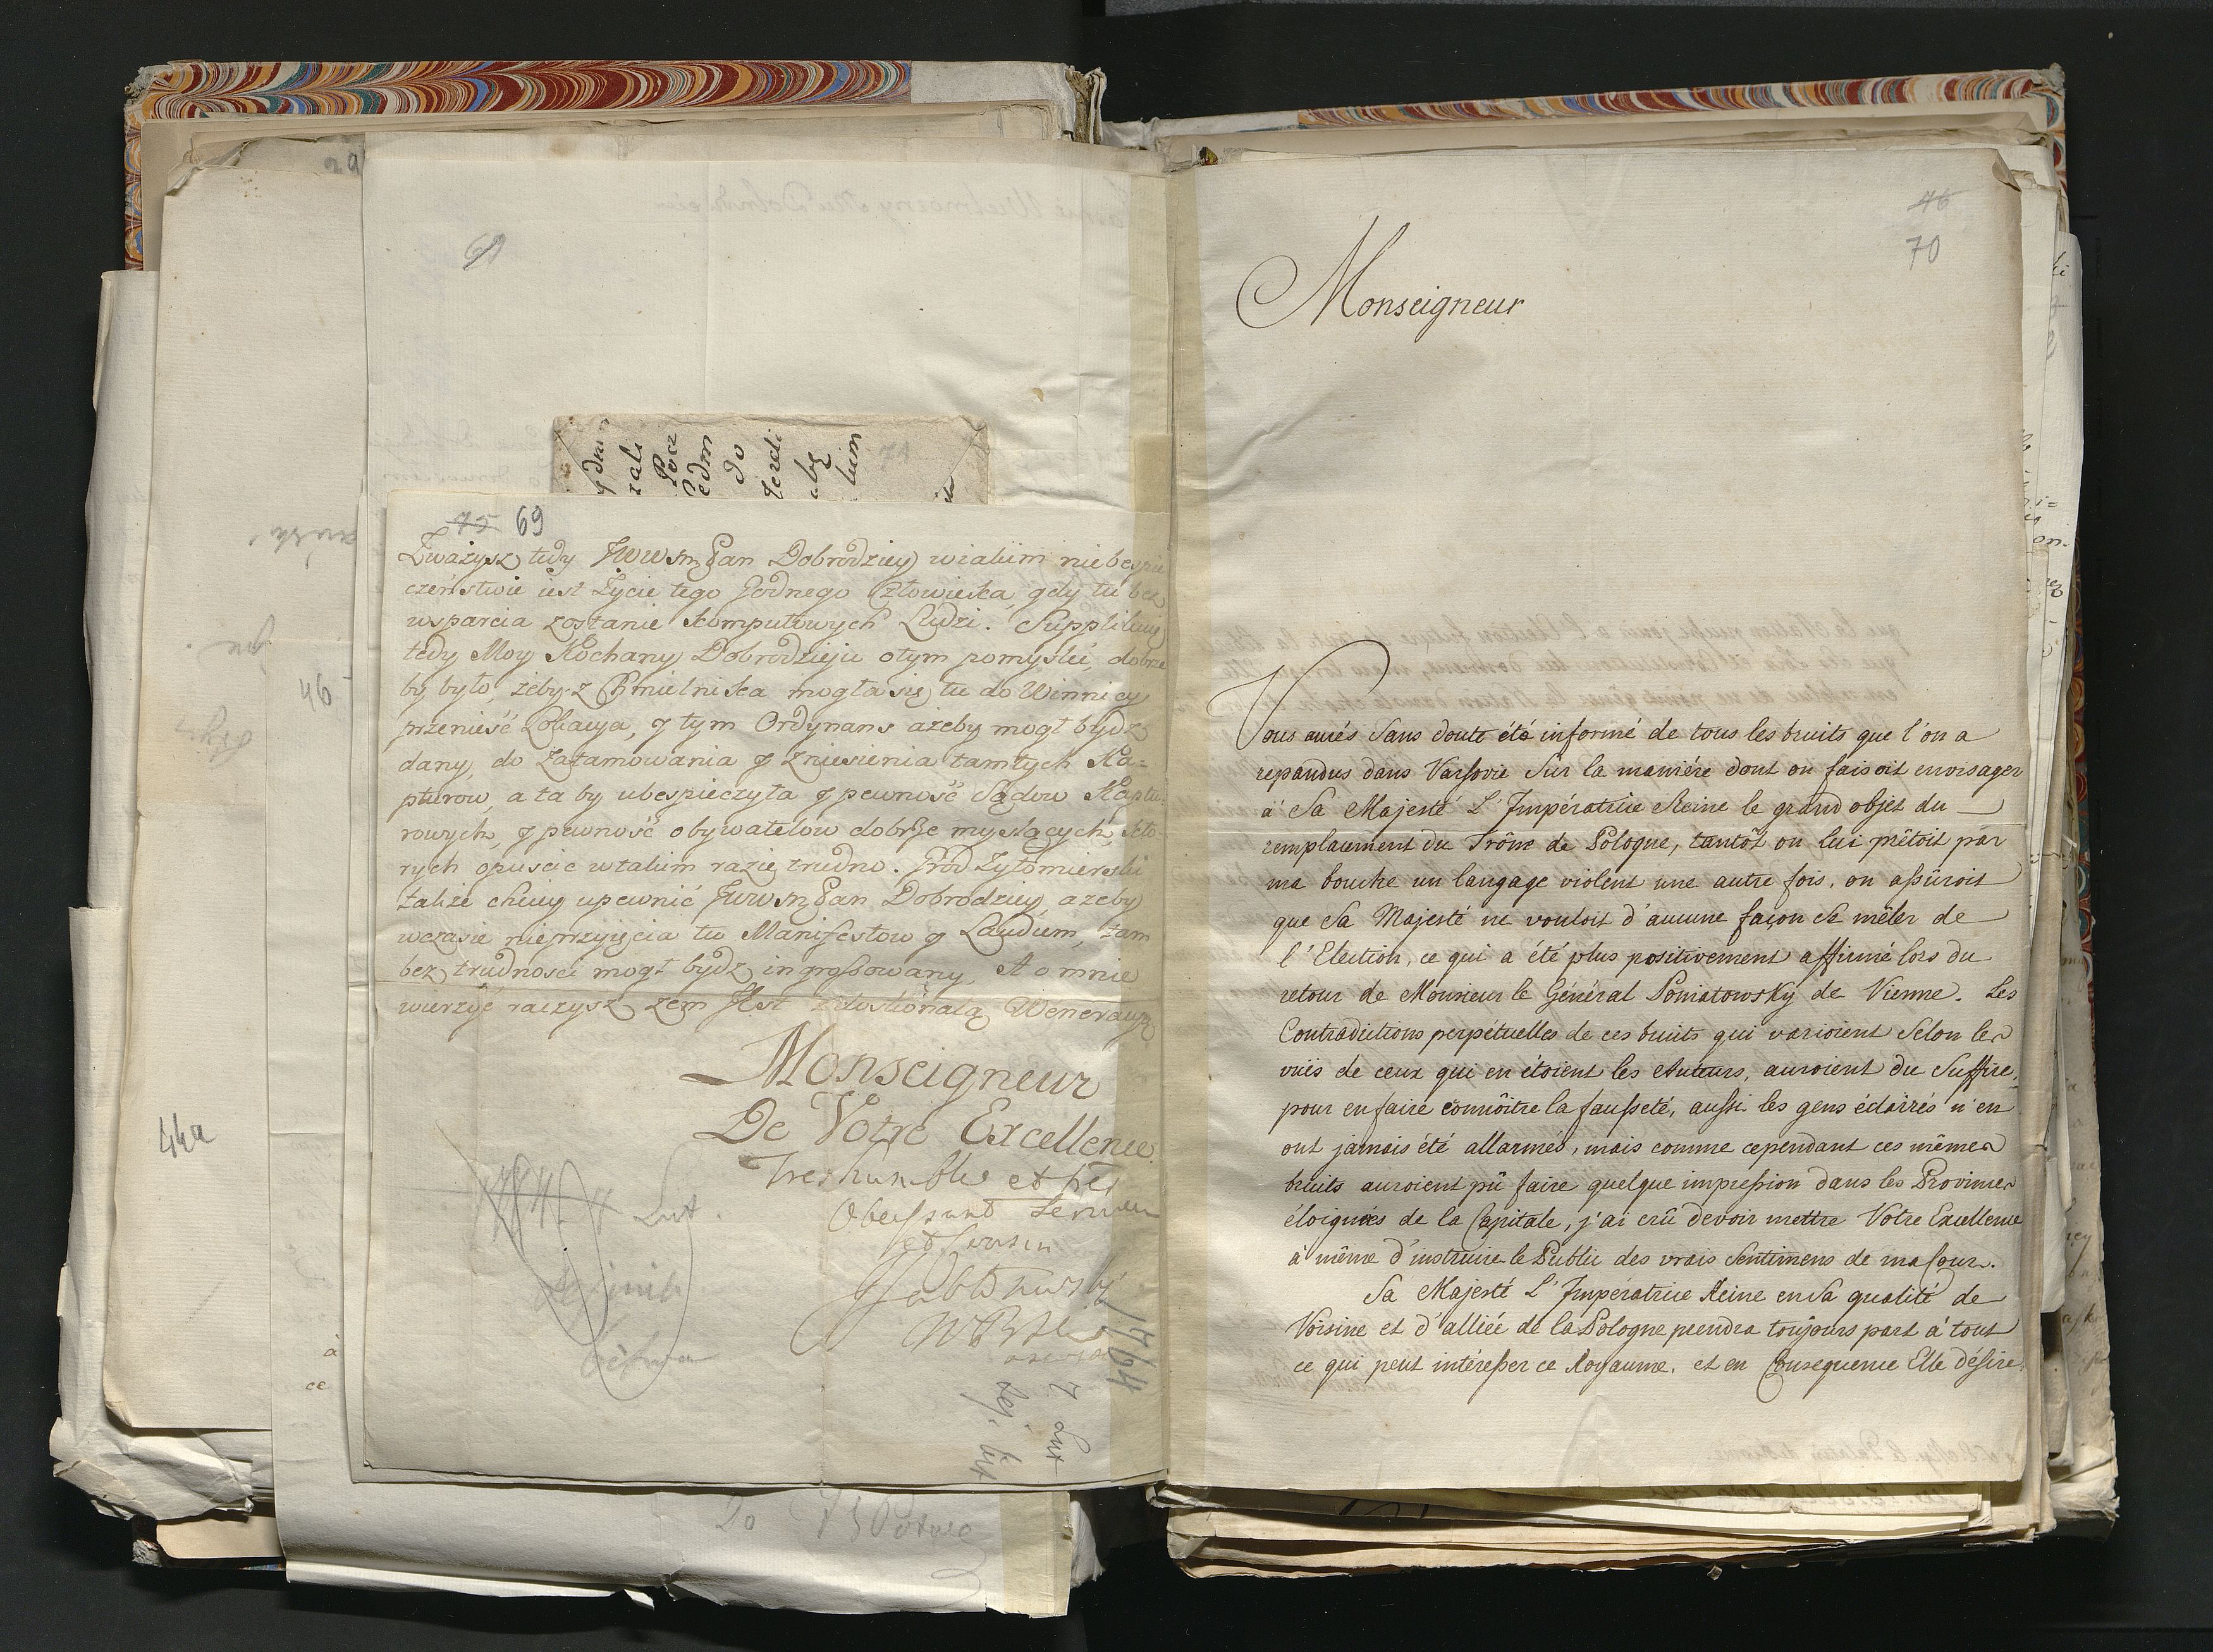 69
75 69
Zważysz tedy JWWM Pan Dobrodziey w iakim niebespie
czeństwie iest Życie tego Godnego Człowieka, gdy tu bez
wsparcia zostanie komputowych Ludzi. Supplikuię
tedy Moy Kochany Dobrodzieju o tym pomyśleć, dobrze
by było, żeby z Chmielnika mogła się tu do Winnicy
przenieść Lokacya, y tym Ordynans ażeby mogł bydź
dany, do Zatamowania y Zniesienia tamtych Ka-
pturow, a ta by ubespieczyła y pewność Sądow Kaptu
rowych, y pewność obywatelow dobrze myslących, kto
rych opuscic w takim razie trudno. Grod Zytomierski
także chciey upewnić JWWM Pan Dobrodziey, azeby
w czasie nieprzyięcia tu Manifestow y Laudum, tam
bez trudnosci mogł bydz ingrossowany, A o mnie
wierzyć raczysz zem Jest z doskonałą Weneracyą
Monseigneur
De Votre Excellence
Tres humble et tres
Obeissant
et Cousin
1764
44a
46
46
70
Monseigneur
Vous aurés Sans doute été informé de tous les bruits que l'on a
repandus dans Varsovie Sur la maniére dont on faisoit envisager
à Sa Majesté L'Impératrice Reine le grand objet du
remplacement du Trône de Pologne, tantôt on lui prêtoit par
ma bouche un langage violent une autre fois, on assûroit
que Sa Majesté ne vouloit d'aucune façon Se mêler de
l'Election, ce qui a été plus positivement affirmé lors du
retour de Monsieur le Général Poniatowsky de Vienne. Les
Contradictions perpétuelles de ces bruits qui varioient Selon les
vuës de ceux qui en étoient les Auteurs, auroient du Suffire,
pour en faire connôitre la fausseté, aussi les gens éclairés n'en
ont jamais été allarmés, mais comme cependant ces mêmes
bruits auroient pû faire quelque impression dans les Provinces
éloignées de la Capitale, j'ai crû devoir mettre Votre Excellence
à même d'instruire le Public des vrais Sentimens de ma Cour.
Sa Majesté L'Impératrice Reine en Sa qualité de
Voisine et d'alliée de la Pologne prendra toujours part à tout
ce qui peut intéresser ce Royaume, et en Consequence Elle désire